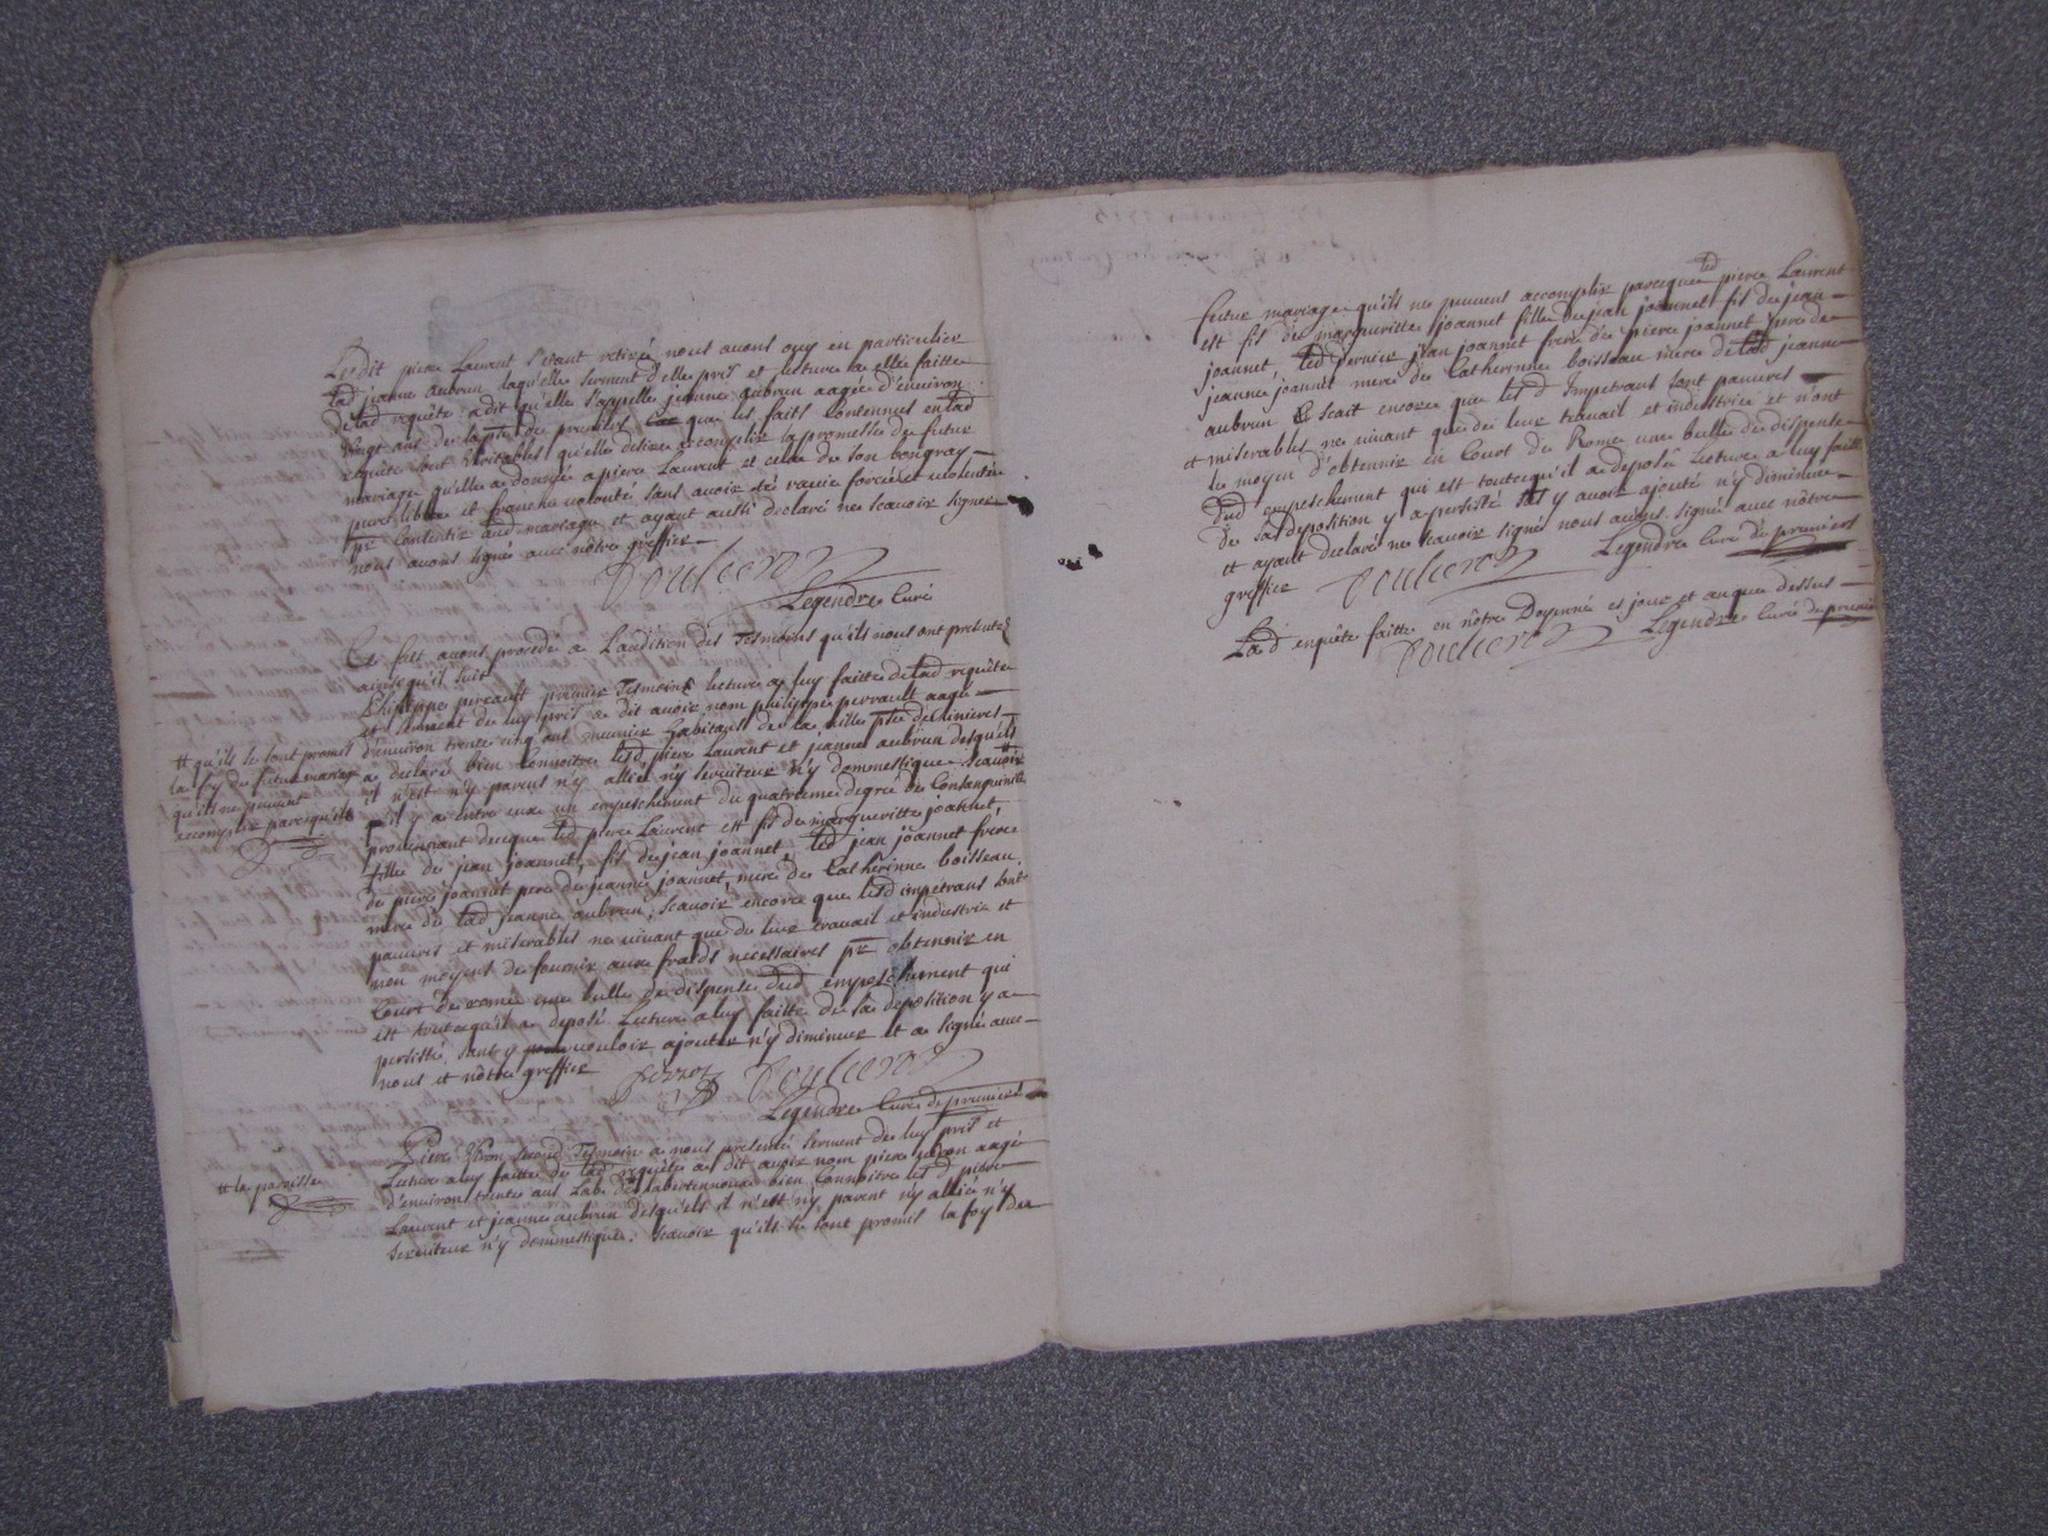 Ledit piere Laurent s'etant retiré nous avons ouy en particulier
lad jeanne aubrun laquelle serment d'elle pris et lecture a elle faitte
delad requête a dit qu'elle s'appelle jeanne aubrun aagée d'environ
vingt ans de la psse de premiers que les faits contennus en lad
requête sont veritables qu'elle desire accomplir la promesse de futur
mariage qu'elle a donnée a piere Laurent et cela de son bongray
pure libre et franche volonté sans avoir été ravie forcée et violentée
pr consentir aud mariage et ayant aussi declaré ne scavoir signer
nous avons signé avec nôtre greffier
Legendre Curé
Ce fait avons procedé a L'audition des Tesmoins qu'ils nous ont presentez
ainsi qu'il suit
Philippe perrault premier Tesmoins lecture a luy faitte delad requête
et serment de luy pris a dit avoir nom philippe perrault aagé
d'environ trente cinq ans meunier habitant de la ville psse de Linieres
a declaré bien connoitre lesd piere Laurent et jeanne aubrun desquels
il n'est n'y parent n'y allié n'y serviteur n'y dommestique scavoir #
# qu'ils se sont promis
la foy de futur mariage
qu'ils ne peuvent
accomplir parcequ'ils
qu'il y a entre eux un empeschement du quatrieme degré de Consanguinité
provennant de ce que led piere Laurent est fils de margueritte joannet,
fille de jean joannet, fils de jean joannet, led jean joannet frere
de piere joannet pere de jeanne joannet, mere de Catherinne boisseau,
mere de lad jeanne aubrun, scavoir encore que lesd impétrans sont
pauvres et miserables ne vivant que de leur travail et industrie et
non moyens de fournir aux fraids necessaires pr obtennir en
Court de rome une bulle de dispense dud empeschement qui
est tout ce qu'il a deposé Lecture a luy faitte de sa deposition y a
persisté, sans y vouloir ajouter n'y diminuer et a signé avec
nous et nôtre greffier
Legendre Curé de premiers
Piere second Tesmoin a nous presenté serment de luy pris et
Lecture a luy faitte de lad requête a dit avoir nom piere aagé
d'environ trente ans Lab. de bien Connoitre les d piere
# la paroisse
Laurent et jeanne aubrun desquels il n'est n'y parent n'y allié n'y
serviteur n'y dommestique. scavoir qu'ils se sont promis la foy de
futur mariage qu'ils ne peuvent accomplir parceque led piere Laurent
est fils de margueritte joannet fille de jean joannet fils de jean
joannet, led dernier jean joannet frere de piere joannet pere de
jeanne joannet mere de Catherinne boisseau mere de lad jeanne
aubrun Et scait encore que les d Impetrans sont pauvres
et miserables ne vivant que de leur travail et industrie et n'ont
le moyen d'obtennir en Court de Rome une bulle de dispense
dud empeschement qui est tout ce qu'il a deposé Lecture a luy faitte
de sa deposition y a persisté sans y avoir ajouté n'y diminué
et ayant declaré ne scavoir signer nous avons signé avec nôtre
greffier
Legendre Curé de premiers
Lad enquête faitte en nôtre Doyenné es jour et an que dessus
Legendre Curé de premiers